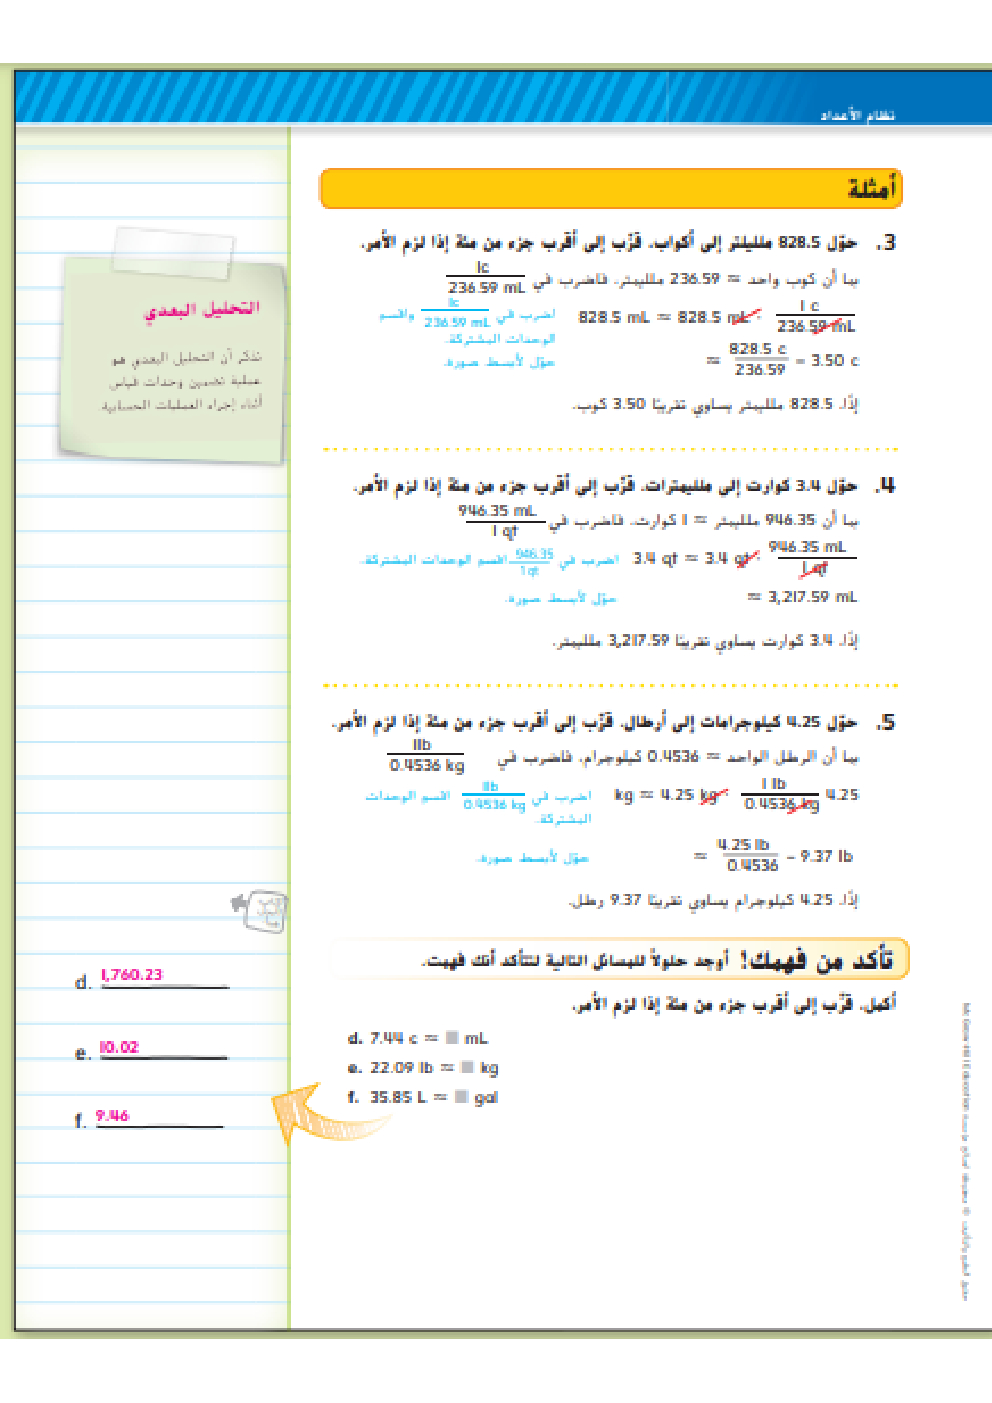 نظام الأعداد
أمثلة
3. حوّل 828.5 ملليلتر إلى أكواب. قرّب إلى أقرب جزء من مئة إذا لزم الأمر.
بما أن كوب واحد ≈ 236.59 ملليمتر، فاضرب في 1c / 236.59 mL
828.5 mL ≈ 828.5 mL · 1 c / 236.59 mL
اضرب في 1c / 236.59 mL واقسم
الوحدات المشتركة.
≈ 828.5 c / 236.59 – 3.50 c
حوّل لأبسط صورة.
إذًا، 828.5 ملليمتر يساوي تقريبًا 3.50 كوب.
التحليل البعدي
تذكر أن التحليل البعدي هو
عملية تضمين وحدات قياس
أثناء إجراء العمليات الحسابية.
4. حوّل 3.4 كوارت إلى ملليمترات. قرّب إلى أقرب جزء من مئة إذا لزم الأمر.
بما أن 946.35 ملليمتر ≈ 1 كوارت، فاضرب في 946.35 mL / 1 qt
3.4 qt ≈ 3.4 qt · 946.35 mL / 1 qt
اضرب في 946.35 / 1 qt اقسم الوحدات المشتركة.
≈ 3,217.59 mL
حوّل لأبسط صورة.
إذًا، 3.4 كوارت يساوي تقريبًا 3,217.59 ملليمتر.
5. حوّل 4.25 كيلوجرامات إلى أرطال. قرّب إلى أقرب جزء من مئة إذا لزم الأمر.
بما أن الرطل الواحد ≈ 0.4536 كيلوجرام، فاضرب في 1lb / 0.4536 kg
kg ≈ 4.25 kg · 1 lb / 0.4536 kg 4.25
اضرب في 1lb / 0.4536 kg اقسم الوحدات
المشتركة.
≈ 4.25 lb / 0.4536 – 9.37 lb
حوّل لأبسط صورة.
إذًا، 4.25 كيلوجرام يساوي تقريبًا 9.37 رطل.
تأكد من فهمك! أوجد حلولاً للمسائل التالية لتتأكد أنك فهمت.
أكمل. قرّب إلى أقرب جزء من مئة إذا لزم الأمر.
d. 7.44 c ≈ ■ mL
e. 22.09 lb ≈ ■ kg
f. 35.85 L ≈ ■ gal
d. 1,760.23
e. 10.02
f. 9.46